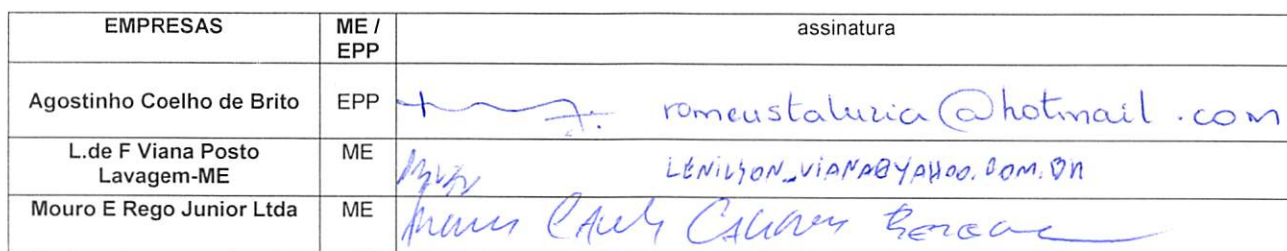 EMPRESAS ME / EPP assinatura
Agostinho Coelho de Brito EPP romeustaluzia@hotmail.com
L.de F Viana Posto Lavagem-ME ME LENILSON_VIANA@YAHOO.COM.BR
Mouro E Rego Junior Ltda ME